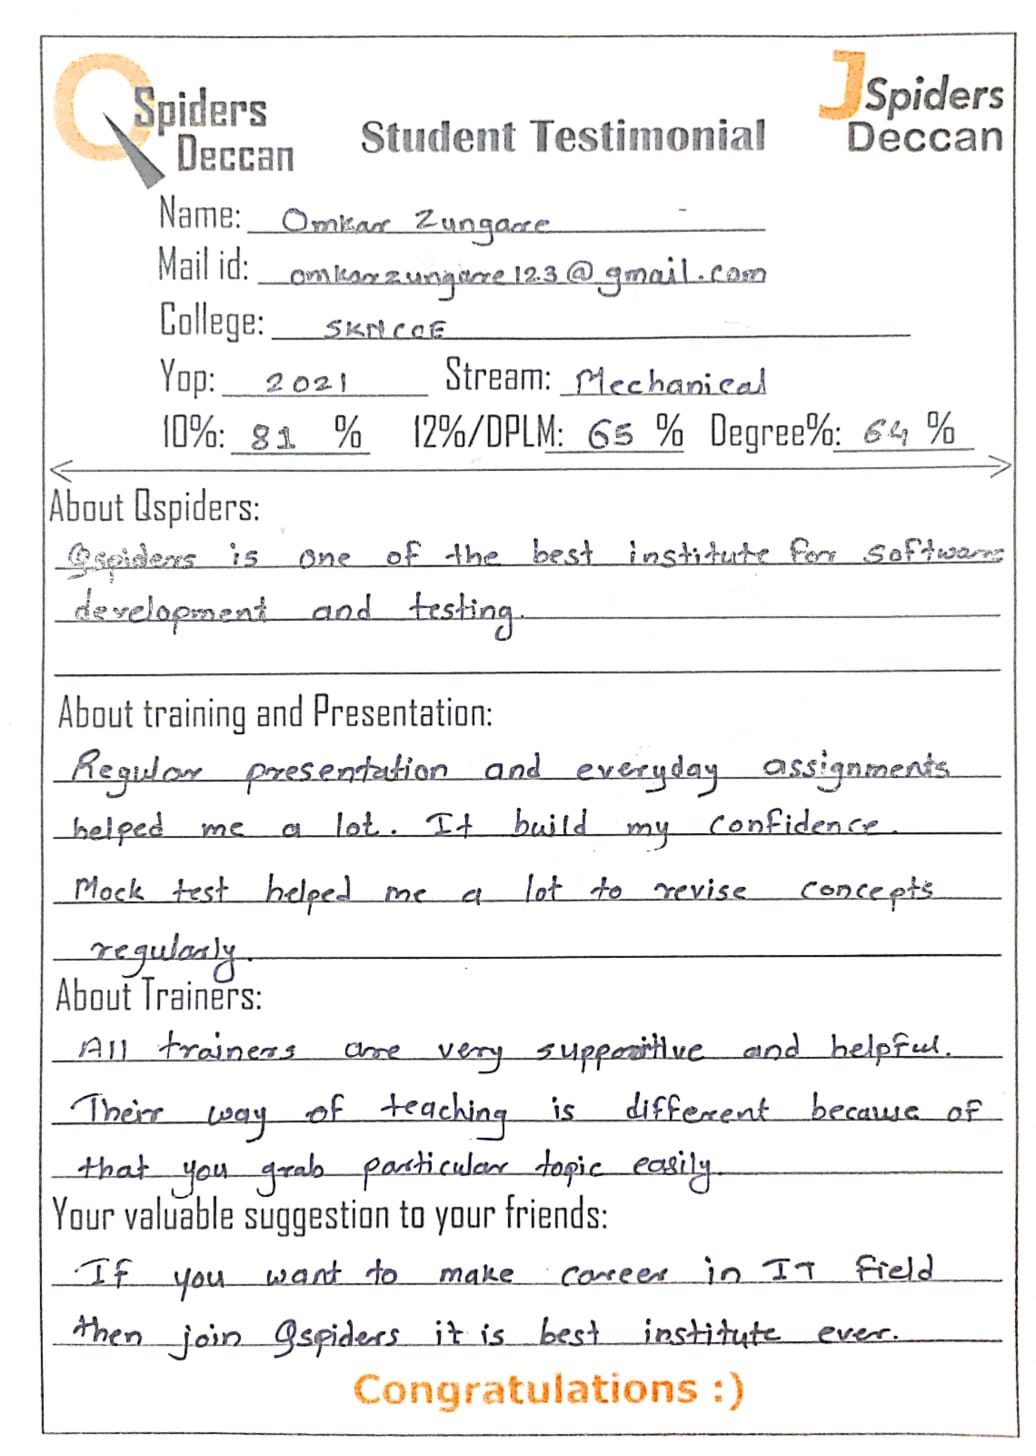 QSpiders
Deccan
Student Testimonial
JSpiders
Deccan
Name: Omkar Zungare
Mail id: omkarzungare123@gmail.com
College: SKNCOE
Yop: 2021 Stream: Mechanical
10%: 81 % 12%/DPLM: 65 % Degree%: 64 %
About Qspiders:
Qspiders is one of the best institute for software
development and testing.
About training and Presentation:
Regular presentation and everyday assignments
helped me a lot. It build my confidence.
Mock test helped me a lot to revise concepts
regularly.
About Trainers:
All trainers are very supportive and helpful.
Their way of teaching is different because of
that you grab particular topic easily.
Your valuable suggestion to your friends:
If you want to make career in IT field
then join Qspiders it is best institute ever.
Congratulations :)